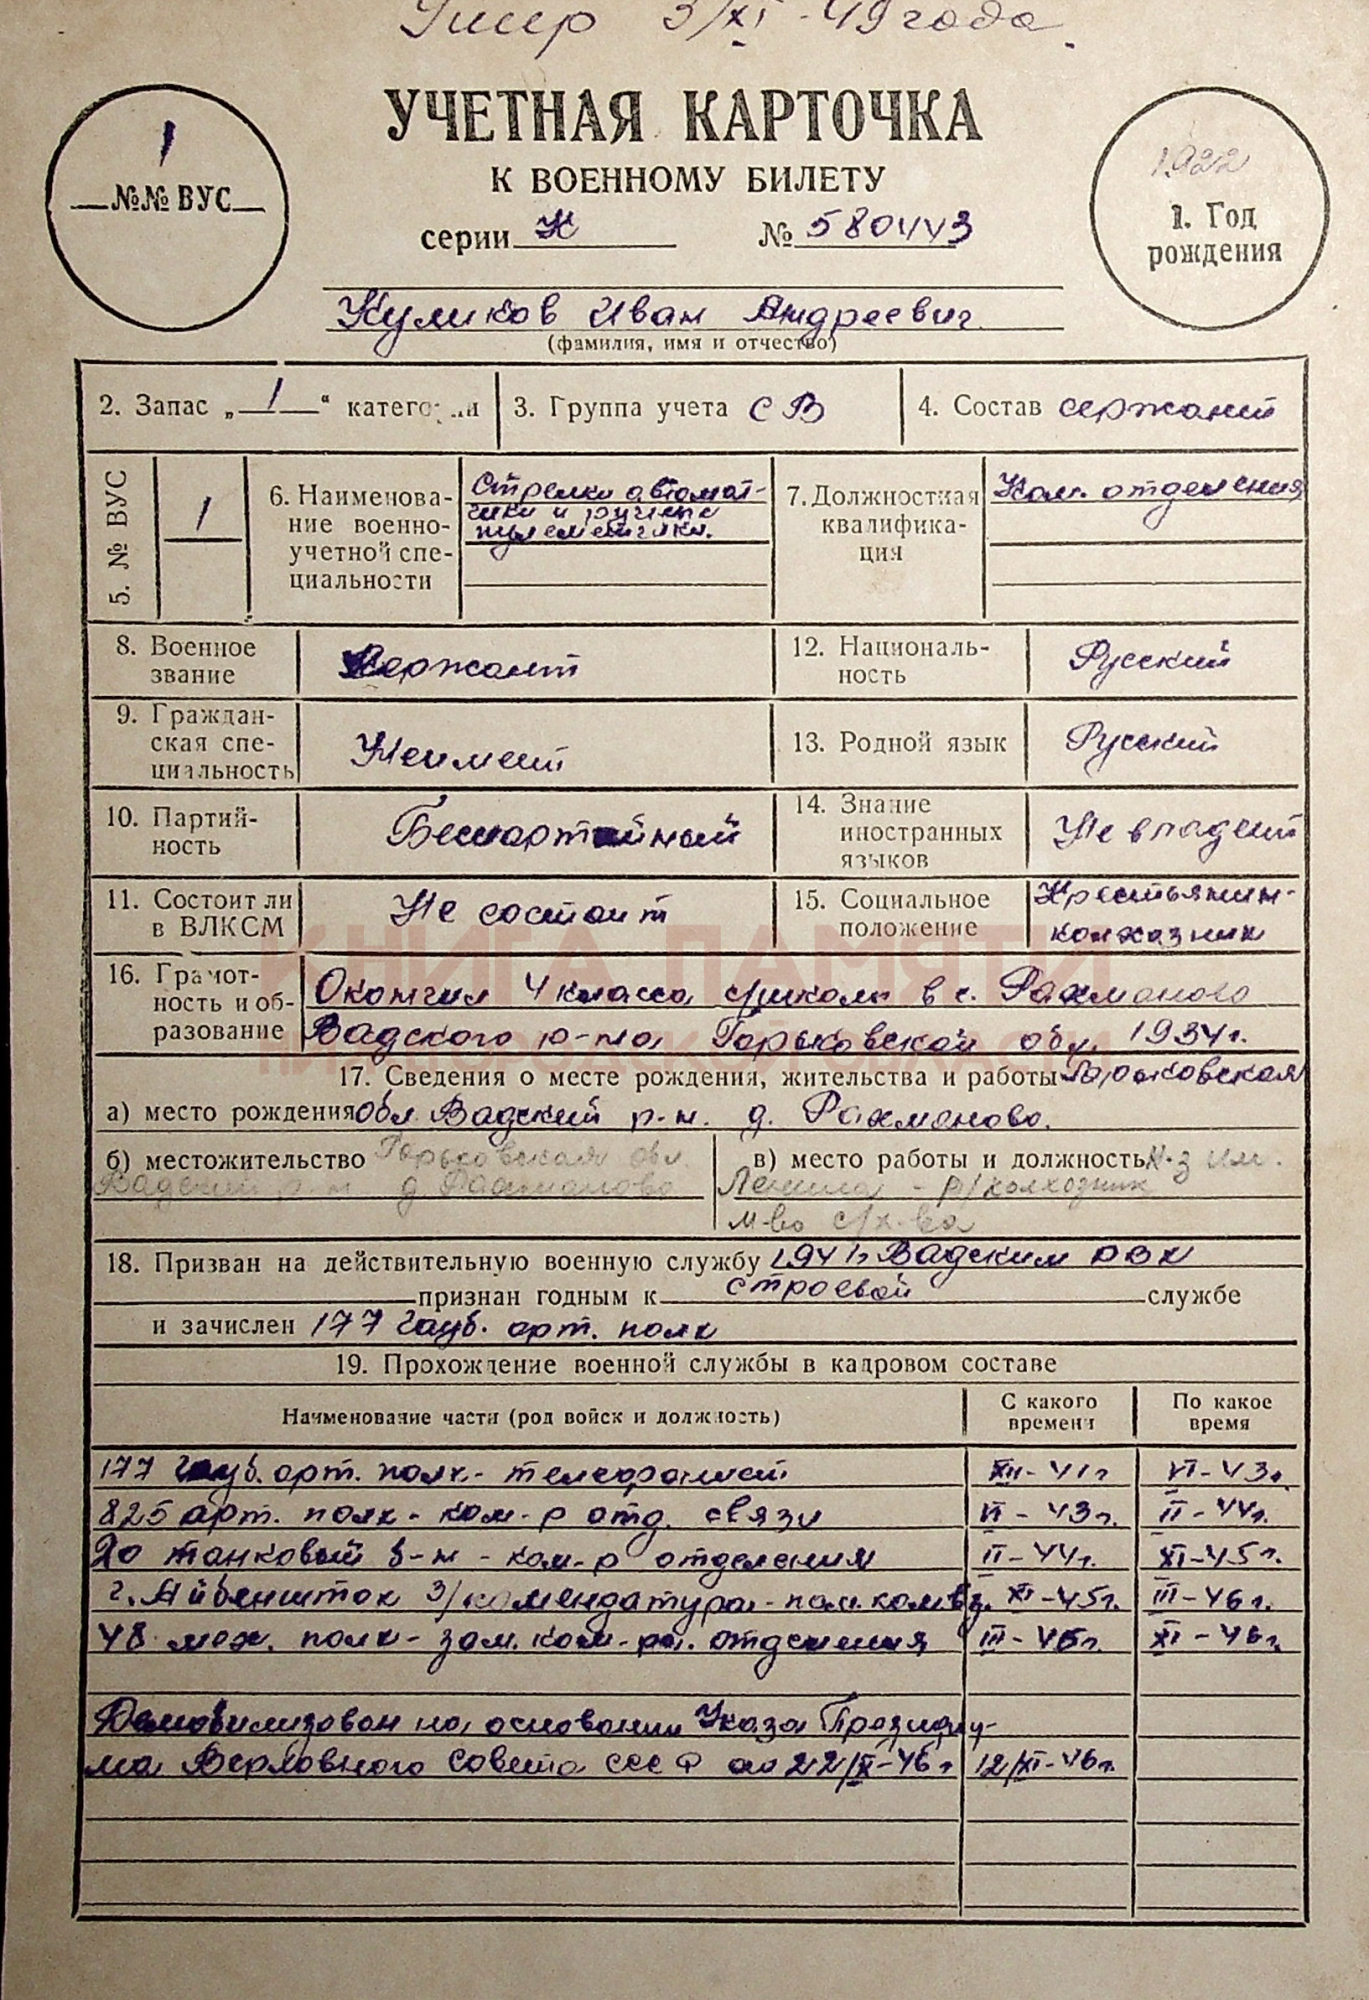 Умер 3/XI-49 года.
УЧЕТНАЯ КАРТОЧКА
К ВОЕННОМУ БИЛЕТУ
1
№№ ВУС
серии Н № 580443
1922
1. Год
рождения
Куликов Иван Андреевич
(фамилия, имя и отчество)
2. Запас „1“ категории
3. Группа учета СВ
4. Состав сержант
5. № ВУС
1
6. Наименова-
ние военно-
учетной спе-
циальности
Стрелки автомат-
чики и ручные
пулеметчики.
7. Должностная
квалифика-
ция
Ком. отделения
8. Военное
звание
Сержант
12. Националь-
ность
Русский
9. Граждан-
ская спе-
циальность
Неимеет
13. Родной язык
Русский
10. Партий-
ность
Беспартийный
14. Знание
иностранных
языков
Не владеет
11. Состоит ли
в ВЛКСМ
Не состоит
15. Социальное
положение
Крестьянин-
колхозник
КНИГА ПАМЯТИ
НИЖЕГОРОДСКОЙ ОБЛАСТИ
16. Грамот-
ность и об-
разование
Окончил 4 класса с/школы в с. Рахманово
Вадского р-на Горьковской обл. 1934г.
17. Сведения о месте рождения, жительства и работы Горьковская
а) место рождения обл. Вадский р-н. д. Рахманово.
б) местожительство Горьковская обл.
Вадский р-н д Рахманово
в) место работы и должность к-з им.
Ленина - р/колхозник
м-во с/х-ва
18. Призван на действительную военную службу 1941г Вадским РВК
признан годным к строевой службе
и зачислен 177 гауб. арт. полк
19. Прохождение военной службы в кадровом составе
Наименование части (род войск и должность)
С какого
времени
По какое
время
177 гауб. арт. полк - телефонист XII-41г VI-43г.
825 арт. полк - ком-р отд. связи VI-43г. II-44г.
20 танковый б-н - ком-р отделения II-44г. XI-45г.
г. Айбеншток 3/комендатура - пом. ком вз. XI-45г. III-46г.
48 мех. полк - зам. ком-ра. отделения III-46г. XI-46г.
Демобилизован на основании Указа Президиу-
ма Верховного Совета СССР от 22/IX-46г 12/XI-46г.